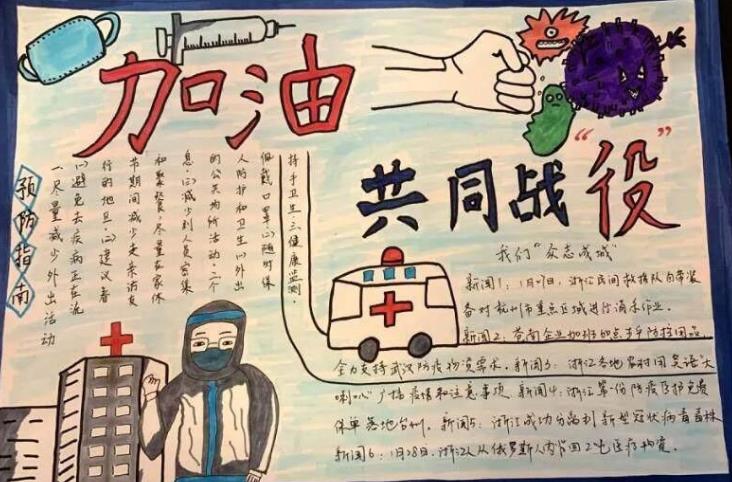 加油
共同战“役”
预防指南
一.尽量减少外出活动
(1)避免去疾病正在流
行的地区.(2)建议春
节期间减少走亲访友
和聚餐,尽量在家休
息.(3)减少到人员密集
的公共场所活动.二个
人防护和卫生.(1)外出
佩戴口罩.(2)随时保
持手卫生三.健康监测.
我们“众志成城”
新闻1:1月27日,浙江民间救援队自带装
备对杭州市重点区域进行消杀作业.
新闻2:苍南企业加班加点生产防控用品,
全力支持武汉防疫物资需求.新闻3:浙江各地农村用“土话”大
喇叭广播疫情和注意事项.新闻4:浙江首份防疫医护免费
保单落地台州.新闻5:浙江成功分离到新型冠状病毒毒株
新闻6:1月28日,浙江人从俄罗斯人肉背回